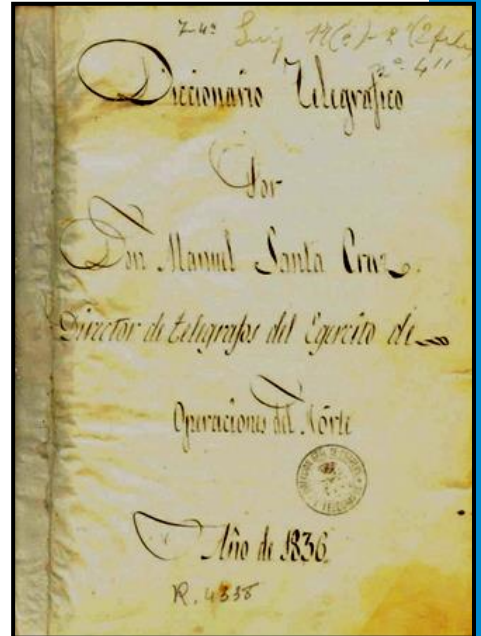 Diccionario Telegráfico
Por
Don Manuel Santa Cruz.
Director de telegrafos del Egercito de
Operaciones del Norte
Año de 1836
R. 4338